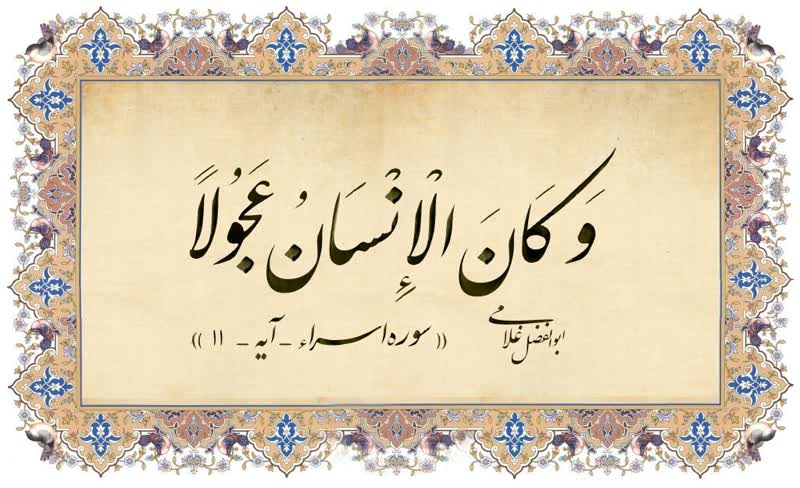 وَ كَانَ الْإِنْسَانُ عَجُولًا
ابوالفضل غلامی
(( سوره اسراء - آیه - ۱۱ ))